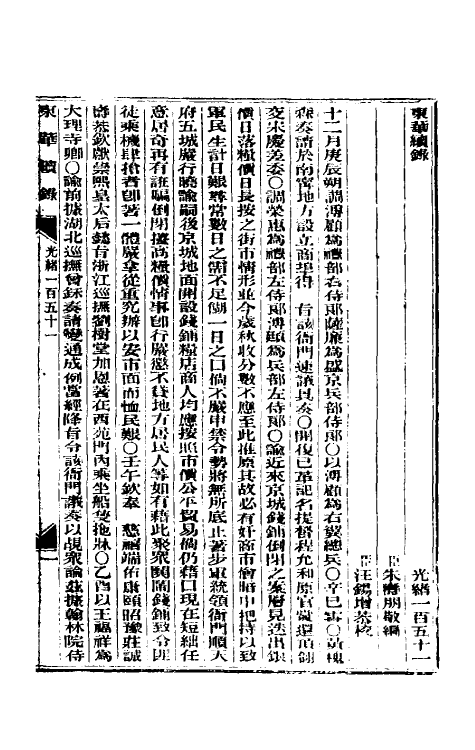 東華續錄
光緒一百五十一
臣朱壽朋敬編
臣汪鍚增恭校
十二月庚辰朔調溥顧為禮部右侍郎薩廉為盛京兵部侍郎○以溥顧為右翼總兵○辛巳諭○黃槐
森奏請於南寧地方設立商埠得旨該衙門速議具奏○開復已革記名提督程允和原官衙還頂翎
交宋慶差委○調榮惠為禮部左侍郎溥顧為兵部左侍郎○諭近來京城錢鋪倒閉之案層見迭出銀
價日落糧價日長按之街市情形並今歲秋收分數不應至此推原其故必有奸商市儈暗中把持以致
軍民生計日艱尋常數日之需不足供一日之口倘不嚴申禁令勢將無所底止著步軍統領衙門順天
府五城嚴行曉諭嗣後京城地面開設錢鋪糧店商人均應按照市價公平貿易倘仍藉口現在短絀任
意居奇再有誆騙倒閉擡高糧價情事即行嚴懲不貸地方居民人等如有藉此聚眾鬨鬧錢鋪致令匪
徒乘機肆搶者即著一體嚴拿從重究辦以安市面而恤民艱○壬午欽奉慈禧端佑康頤昭豫莊誠
壽恭欽獻崇熙皇太后懿旨浙江巡撫劉樹堂加恩著在西苑門內乘坐船隻拖牀○乙酉以王福祥為
大理寺卿○諭前據湖北巡撫曾鉌奏請變通成例當經降旨令該衙門議奏以覘眾論茲據翰林院侍
東華續錄
光緒一百五十一
一